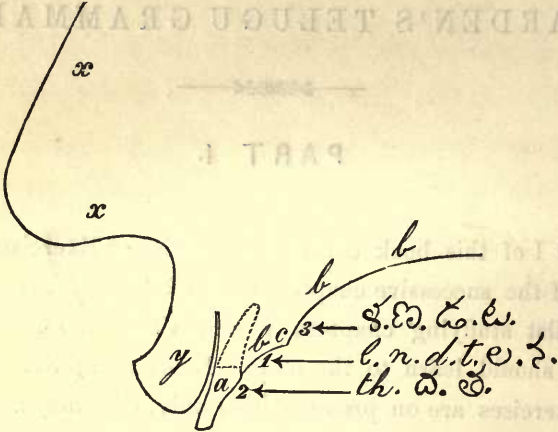 x
x
b
b
b c 3 ← ళ. ణ. డ. ట.
y
1 ← l. n. d. t. ల. న.
a 2 ← th. ద. త.